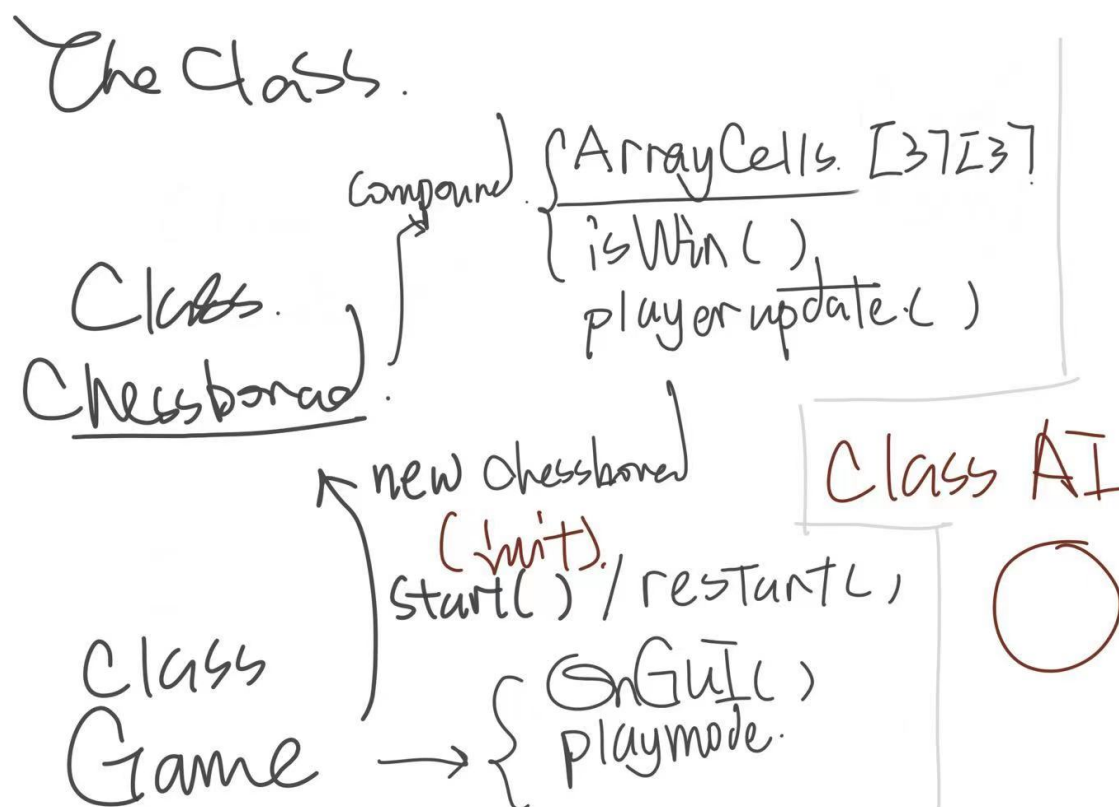 The Class.
compound. ArrayCells. [3][3]
isWin()
playerupdate.()
Class.
Chessborad.
new chessborad
(init).
start() / restart()
Class AI
Class
Game
OnGUI()
playmode.